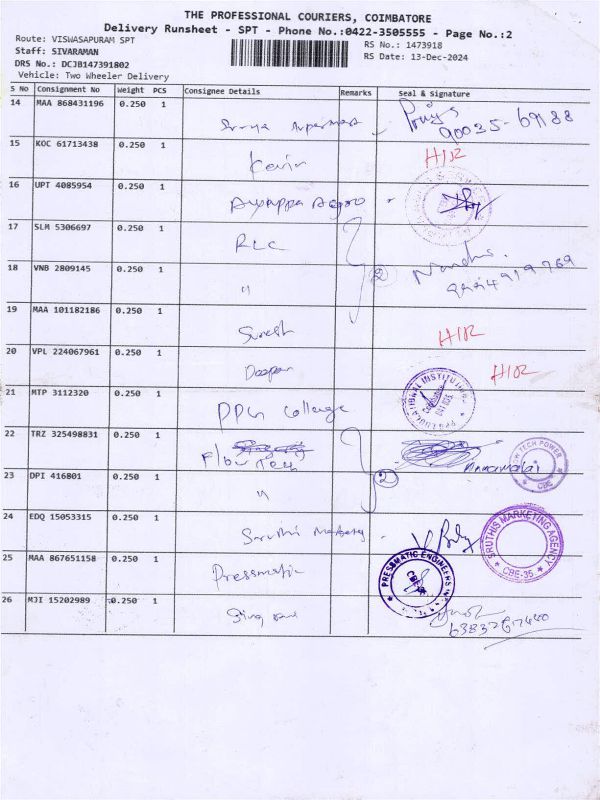 THE PROFESSIONAL COURIERS, COIMBATORE
Delivery Runsheet - SPT - Phone No.:0422-3505555 - Page No.:2
Route: VISWASAPURAM SPT
RS No.: 1473918
Staff: SIVARAMAN
RS Date: 13-Dec-2024
DRS No.: DCJB147391802
Vehicle: Two Wheeler Delivery
S No Consignment No Weight PCS Consignee Details Remarks Seal & Signature
14 MAA 868431196 0.250 1
15 KOC 61713438 0.250 1 Kavin H/R
16 UPT 4085954 0.250 1 Ayyappa Agro
17 SLM 5306697 0.250 1 RLC
18 VNB 2809145 0.250 1 " 2
19 MAA 101182186 0.250 1 Suresh H/R
20 VPL 224067961 0.250 1 Deepan H/R
21 MTP 3112320 0.250 1 PPG College
22 TRZ 325498831 0.250 1 Flow Tech Annamalai
TECH POWER
CBE
23 DPI 416801 0.250 1 " 2
24 EDQ 15053315 0.250 1 Sruthi
SRUTHIS MARKETING AGENCY
CBE-35
25 MAA 867651158 0.250 1 Pressmatic
PRESSMATIC ENGINEERS
26 MJI 15202989 0.250 1